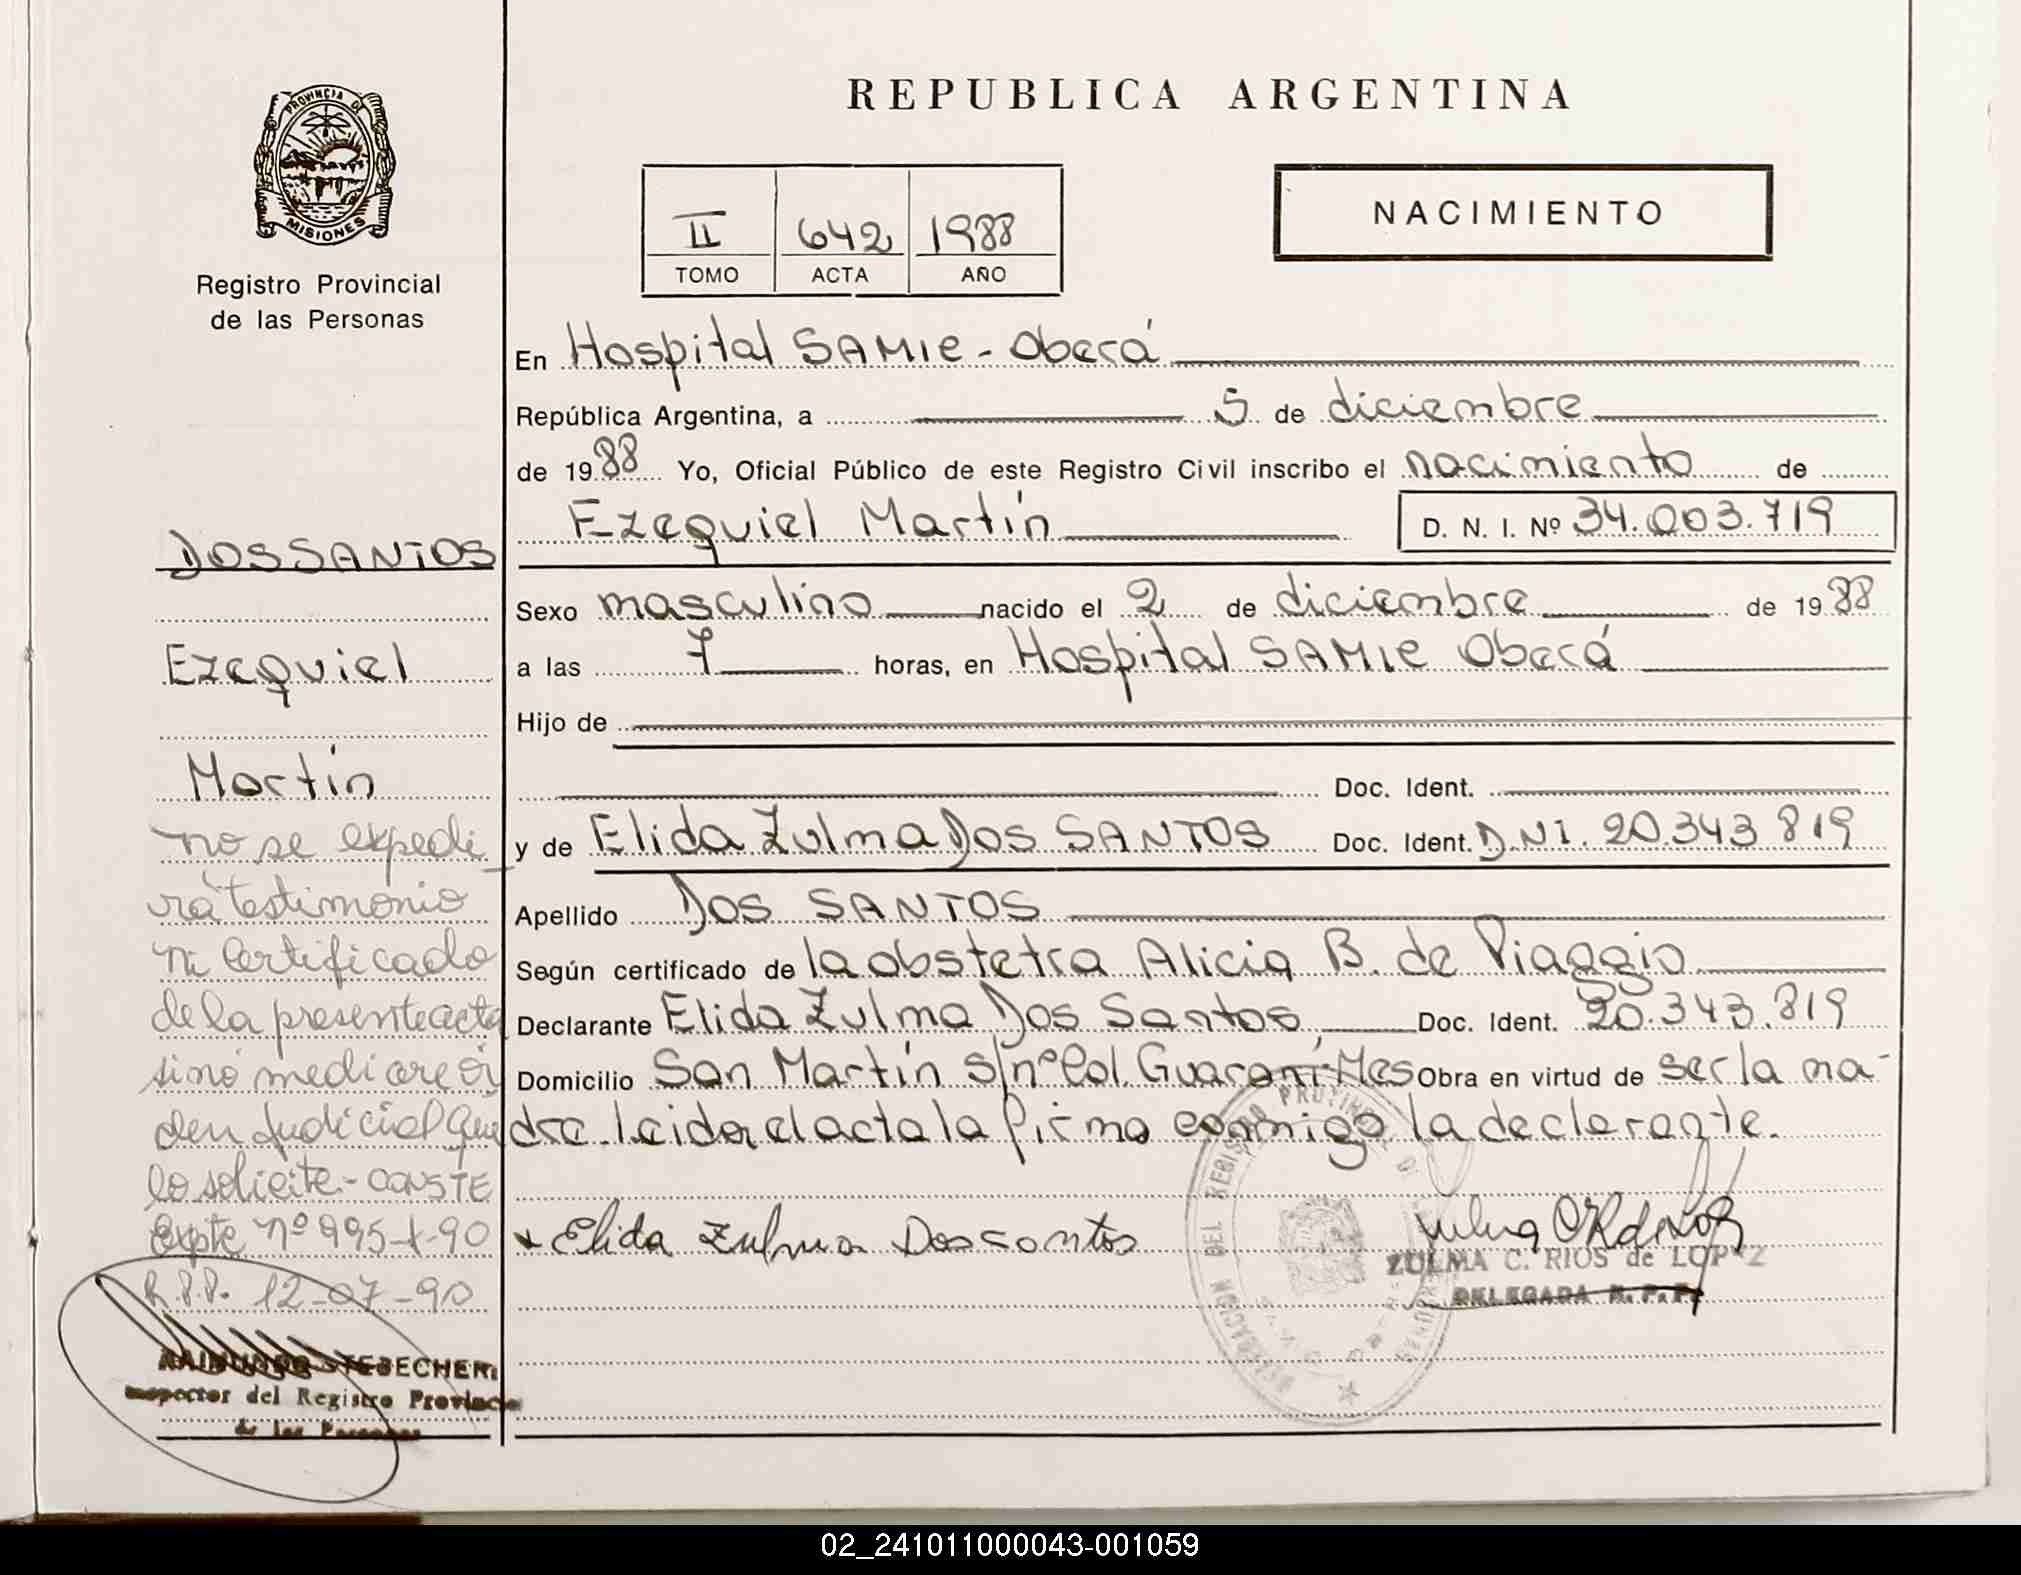 PROVINCIA DE
MISIONES
Registro Provincial
de las Personas
REPUBLICA ARGENTINA
II 642 1988
TOMO ACTA AÑO
NACIMIENTO
En Hospital SAMIC - Oberá
República Argentina, a 5 de diciembre
de 1988 Yo, Oficial Público de este Registro Civil inscribo el nacimiento de
Ezequiel Martín D. N. I. Nº 34.003.719
Sexo masculino nacido el 2 de diciembre de 1988
a las 7 horas, en Hospital SAMIC Oberá
Hijo de
Doc. Ident.
y de Elida Zulma Dos SANTOS Doc. Ident. D.N.I. 20.343.819
Apellido DOS SANTOS
Según certificado de la obstetra Alicia B. de Viaggio
Declarante Elida Zulma Dos Santos, Doc. Ident. 20.343.819
Domicilio San Martín s/nº Col. Guaraní-Mes Obra en virtud de ser la ma-
dre. leida el acta la firma conmigo la declarante.
Elida Zulma Dossantos
ZULMA C. RIOS de LOPEZ
DELEGADA R. P. P.
DELEGACION DEL REGISTRO PROVINCIAL DE
DOS SANTOS
Ezequiel
Martín
no se expedi
rá testimonio
ni certificado
de la presente acta
sino mediare or
den Judicial que
lo solicite.- CONSTE
Expte nº 995-t-90
R.P.P. 12-07-90
RAIMUNDO
Inspector del Registro Provincial
de las Personas
02_241011000043-001059